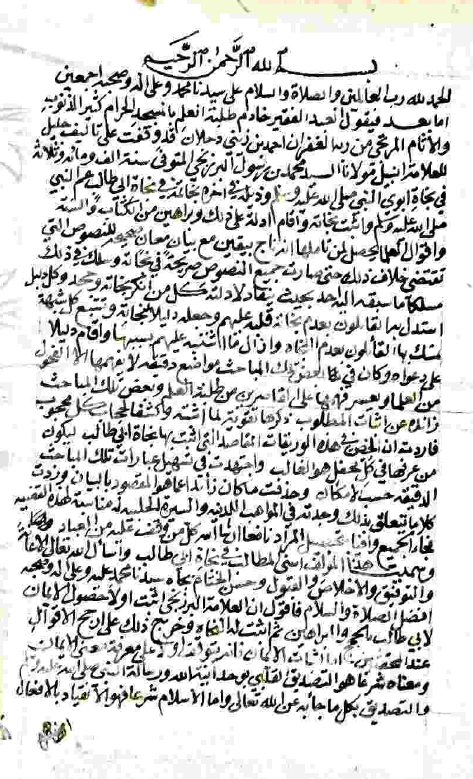 بسم الله الرحمن الرحيم
الحمد لله رب العالمين والصلاة والسلام على سيدنا محمد وعلى اله وصحبه اجمعين
اما بعد فيقول العبد الفقير خادم طلبة العلم بالمسجد الحرام كثير الذنوب
والآثام المرتجي من ربه الغفران احمد بن زيني دحلان قد وقفت على تاليف جليل
للعلامة النبيل مولانا السيد محمد بن رسول البرزنجي المتوفى سنة الف ومائة وثلاثة
في نجاة ابوي النبي صلى الله عليه وسلم وذيله في اخره بخاتمة في نجاة ابي طالب عم النبي
صلى الله عليه وسلم واثبت نجاته واقام ادلة على ذلك وبراهين من الكتاب والسنة
واقوال العلماء يحصل لمن تاملها انه ناج بيقين مع بيان معان صحيحة للنصوص التي
تقتضي خلاف ذلك حتى صارت جميع النصوص صريحة في نجاته وسلك في ذلك
مسلكا ما سبقه اليه احد بحيث ينقاد لادلته كل من انكر نجاته وجحد وكل دليل
استدل به القائلون بعدم نجاته قلبه عليهم وجعله دليلا لنجاته وتتبع كل شبهة
تمسك بها القائلون بعدم النجاة وازال ما اشتبه عليهم بسببها واقام دليلا
على دعواه وكان في بعض تلك المباحث مواضع دقيقة لا يفهمها الا الفحول
من العلماء ويعسر فهمها على القاصرين من طلبة العلم وبعض تلك المباحث
زائدة عن اثبات المطلوب ذكرها تقوية لما اثبته وكشفا لحجاب كل محجوب
فاردت ان الخص في هذه الوريقات المقاصد التي اثبت بها نجاة ابي طالب ليكون
من عرفها في كل محفل هو الغالب واجتهدت في تسهيل عبارات تلك المباحث
الدقيقة حسب الامكان وحذفت ما كان زائدا عما هو المقصود بالبيان وزدت
كلاما يتعلق بذلك وجدته في المواهب اللدنية والسيرة الحلبية له مناسبة لهذه القضية
فجاء الجميع وافيا بتحصيل المراد نافعا ان شاء الله كل من وقف عليه من العباد
وسميت هذا المؤلف اسنى المطالب في نجاة ابي طالب واسال الله تعالى الاعانة
والتوفيق والاخلاص والقبول وحسن الختام بجاه سيدنا محمد عليه وعلى اله وصحبه
افضل الصلاة والسلام فاقول ان العلامة البرزنجي اثبت اولا حصول الايمان
لابي طالب بالحجج والبراهين ثم اثبت له النجاة وخرج ذلك على ارجح الاقوال
عند المحققين اما اثبات الايمان فانه يتوقف اولا على معرفة معنى الايمان
ومعناه شرعا هو التصديق القلبي بوحدانية الله ورسالة النبي صلى الله عليه وسلم
والتصديق بكل ما جاء به عن الله تعالى واما الاسلام شرعا فهو الانقياد بالافعال